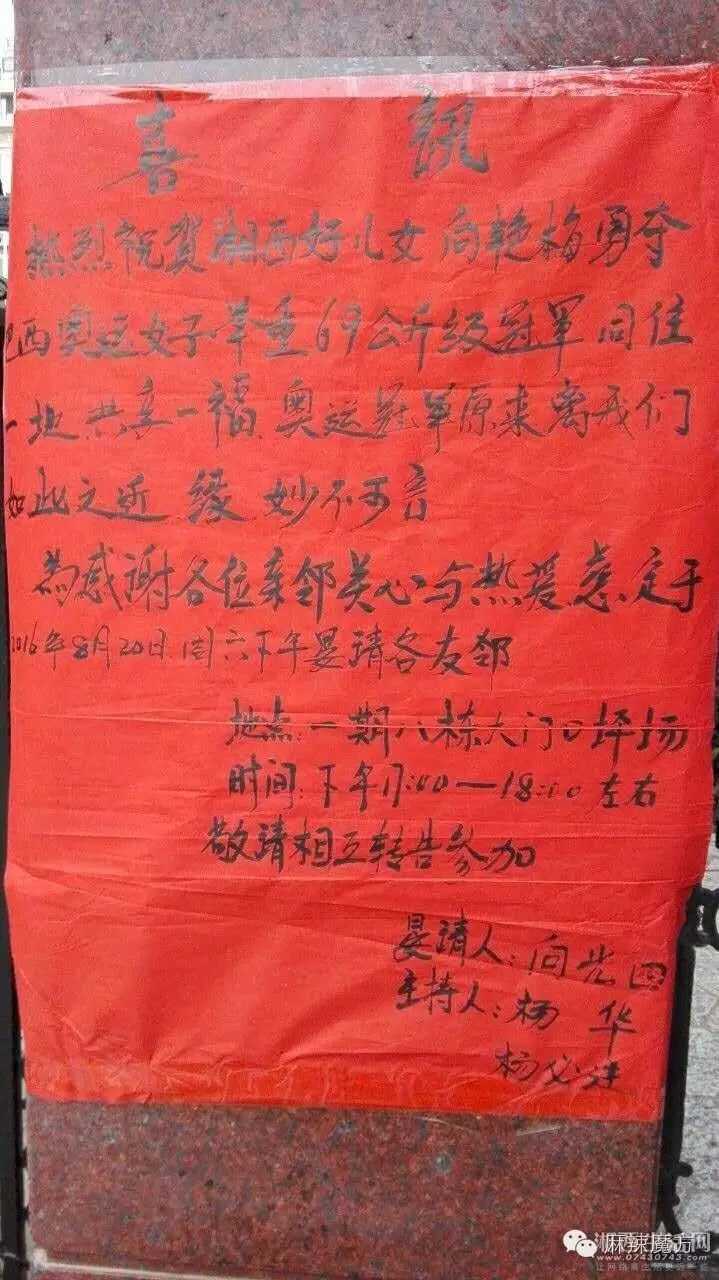 喜 訊
热烈祝贺湘西好儿女向艳梅勇夺
巴西奥运女子举重69公斤级冠军 同住
一地 共享一福 奥运冠军原来离我们
如此之近 缘 妙不可言
為感谢各位亲邻关心与热爱 意定于
2016年8月20日 周六下午晏請各友邻
地点:一期八栋大门口坪场
时间:下午17:00—18:00 左右
敬请相互转告参加
晏請人:向光四
主持人:杨 华
杨必进
麻辣魔方
www.07430743.com